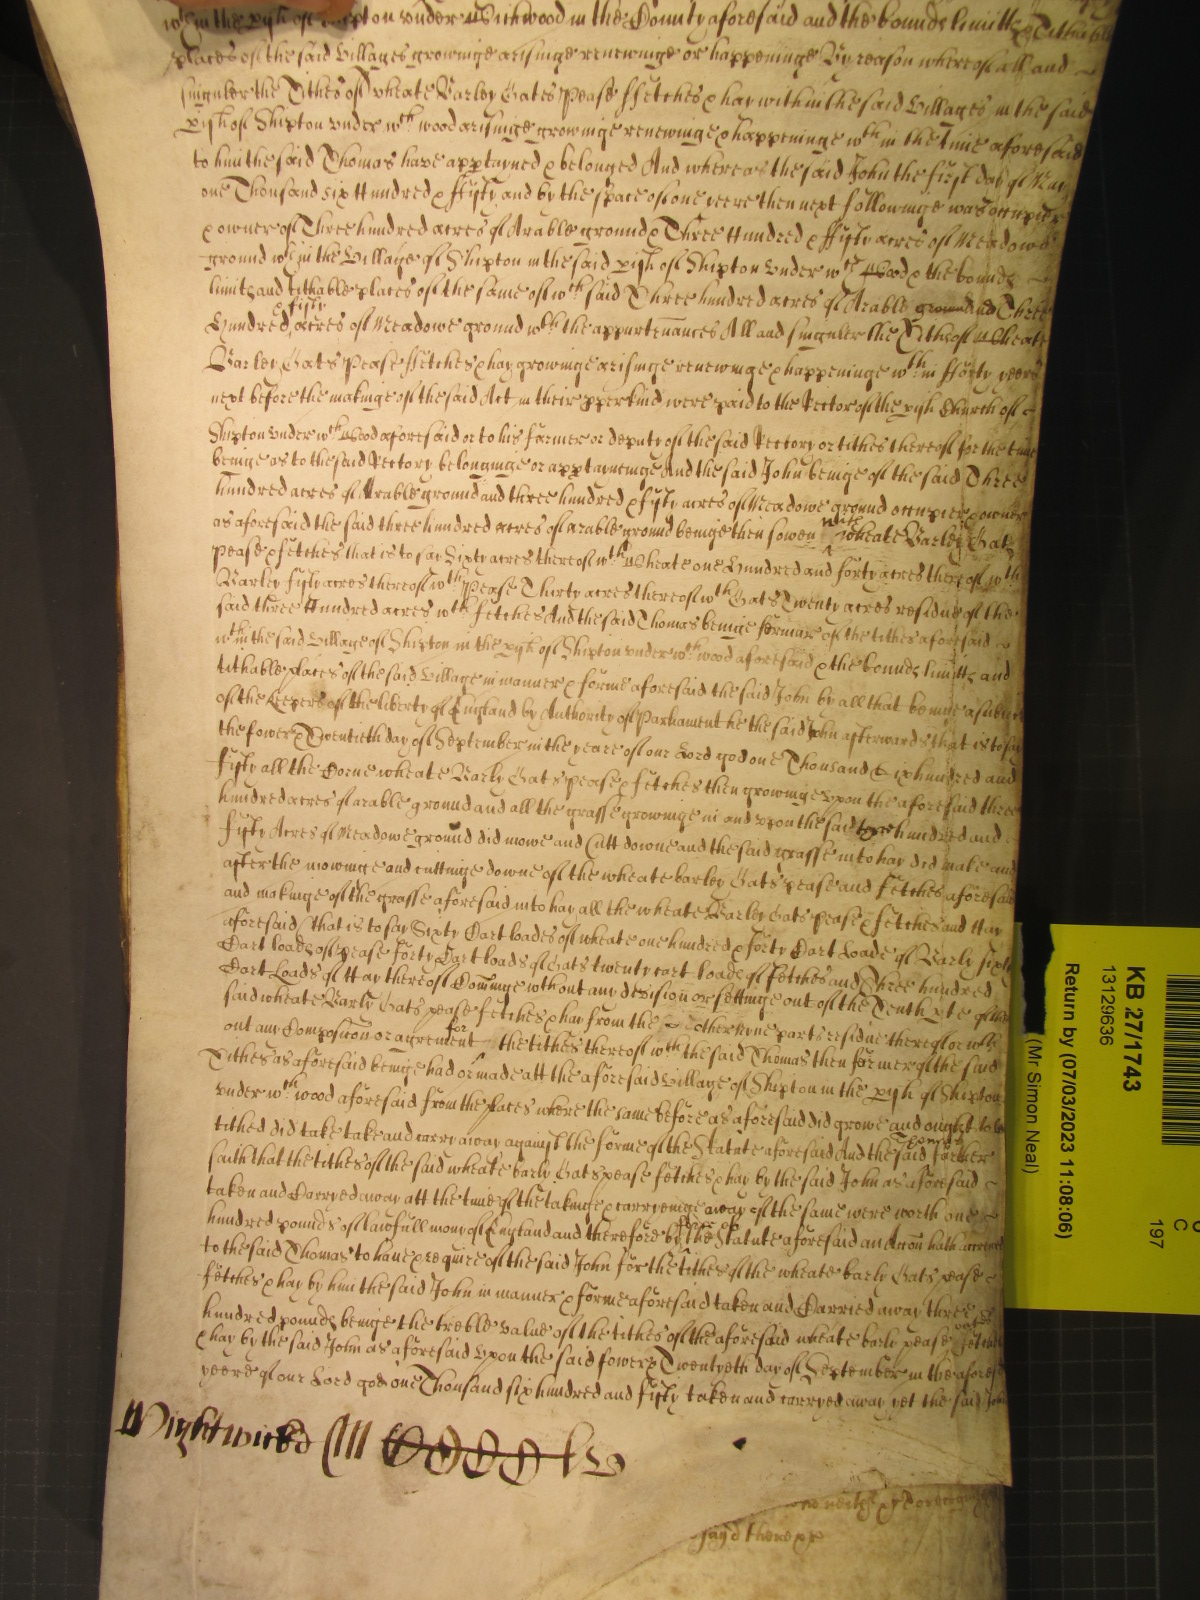 wthin the pish of Shipton under Whichwood in the County aforesaid and the bounds limitts & Tithable
places of the said Villages growinge arisinge renewinge or happeninge By reason whereof all and
singuler the Tithes of wheate Barley Oates Pease ffetches & hay within the said Villages in the said
pish of Shipton under wch wood arisinge growinge renewinge & happeninge wthin the time aforesaid
to him the said Thomas have apptayned & belonged And whereas the said John the first day of May
one Thousand six Hundred & ffifty and by the space of one yeere then next followinge was occupier
& owner of Three hundred acres of Arable ground & Three Hundred & ffifty acres of Meadowe
ground wthin the Village of Shipton in the said pish of Shipton under wch Wood & the bounds
limits and tithable places of the same of wch said Three hundred acres of Arable ground and Three
Hundred & fifty acres of Meadowe ground wth the appurtennces All and singuler the Tithes of Wheate
Barley Oats Pease ffetches & hay growinge arisinge renewinge & happeninge wthin fforty yeares
next before the makinge of the said Act in their pper kind were paid to the Rector of the pish Church of
Shipton under wch Wood aforesaid or to his farmer or deputy of the said Rectory or tithes thereof for the time
beinge as to the said Rectory belonginge or apptayneinge And the said John beinge of the said Three
hundred acres of Arable ground and three hundred & fifty acres of Meadowe ground occupier & owner
as aforesaid the said three hundred acres of arable ground beinge then sowen with wheate Barley Oats
pease & fetches that is to say Sixty acres thereof wth Wheate one Hundred and forty acres thereof wth
Barley fifty acres thereof wth Pease Thirty acres thereof wth Oats Twenty acres residue of the
said three Hundred acres wth fetches And the said Thomas beinge fermar of the tithes aforesaid
wthin the said Village of Shipton in the pish of Shipton under wch wood aforesaid & the bounds limitts and
tithable places of the said Village in manner & forme aforesaid the said John by all that beinge a subiect
of the Keepers of the liberty of England by Authority of Parliament he the said John afterwards that is to say
the fower & Twentieth day of September in the yeare of our Lord god one Thousand Sixhundred and
fifty all the Corne wheate Barly Oats pease & fetches then growinge upon the aforesaid three
hundred acres of arable ground and all the grasse growinge in and upon the said three hundred and
fifty Acres of Meadowe ground did mowe and Cutt downe and the said grasse into hay did make and
after the mowinge and cuttinge downe of the wheate barley Oats pease and fetches aforesaid
and makinge of the grasse aforesaid into hay all the wheate Barley Oats pease & fetches and Hay
aforesaid that is to say Sixty Cart loades of wheate one hundred & forty Cart Loade of Barly sixty
Cart loads of pease forty Cart loads of Oats twenty cart loads of fetches and Three hundred
Cart Loads of Hay thereof Comminge without any devision or settinge out of the Tenth pte of the
said wheate Barly Oats pease fetches & hay from the other nyne parts residue thereof or with
out any Composition or agrement for the tithes thereof wth the said Thomas then farmer of the said
Tithes as aforesaid beinge had or made att the aforesaid Village of Shipton in the pish of Shipton
under wch wood aforesaid from the places where the same before as aforesaid did growe and ought to be
tithed did take take and carry away against the forme of the Statute aforesaid And the said Thomas farther
saith that the tithes of the said wheate barly Oats pease fetches & hay by the said John as aforesaid
taken and Carryed away att the time of the takinge & carryeinge away of the same were worth one
hundred pounds of lawfull mony of England and therefore by force of the Statute aforesaid an Accon hath accrued
to the said Thomas to have & require of the said John for the tithes of the wheate barly Oats pease
fetches & hay by him the said John in manner & forme aforesaid taken and Carried away three
hundred pounds beinge the treble value of the tithes of the aforesaid wheate barly pease oats fetches
& hay by the said John as aforesaid upon the said fower & Twentyeth day of September in the aforesd
yeere of our Lord god one Thousand six hundred and fifty taken and carryed away yet the said John
Wightwicke
KB 27/1743
13129636
Return by (07/03/2023 11:08:06)
(Mr Simon Neal)
C
197